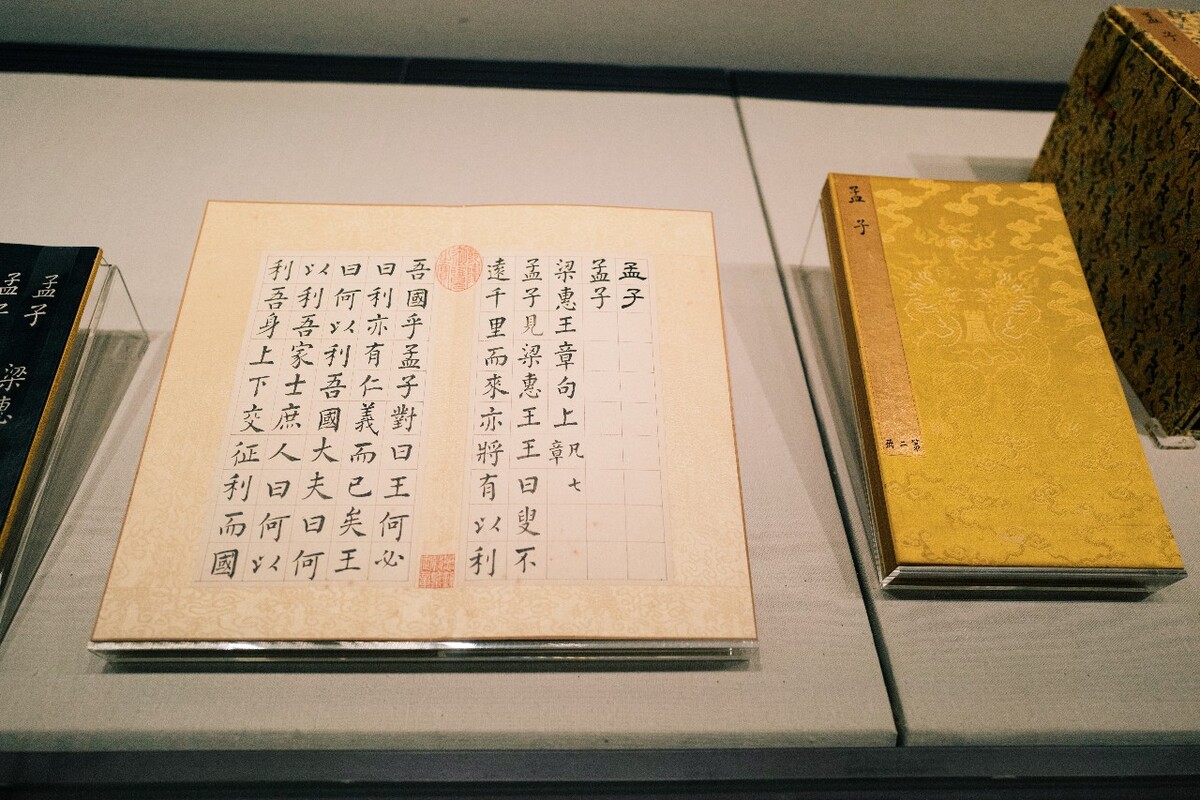 孟子
孟子
孟子
第二冊
孟子
孟子
梁惠王章句上凡七章
孟子見梁惠王王曰叟不
遠千里而來亦將有以利
吾國乎孟子對曰王何必
曰利亦有仁義而已矣王
曰何以利吾國大夫曰何
以利吾家士庶人曰何以
利吾身上下交征利而國
孟子 梁惠
孟子